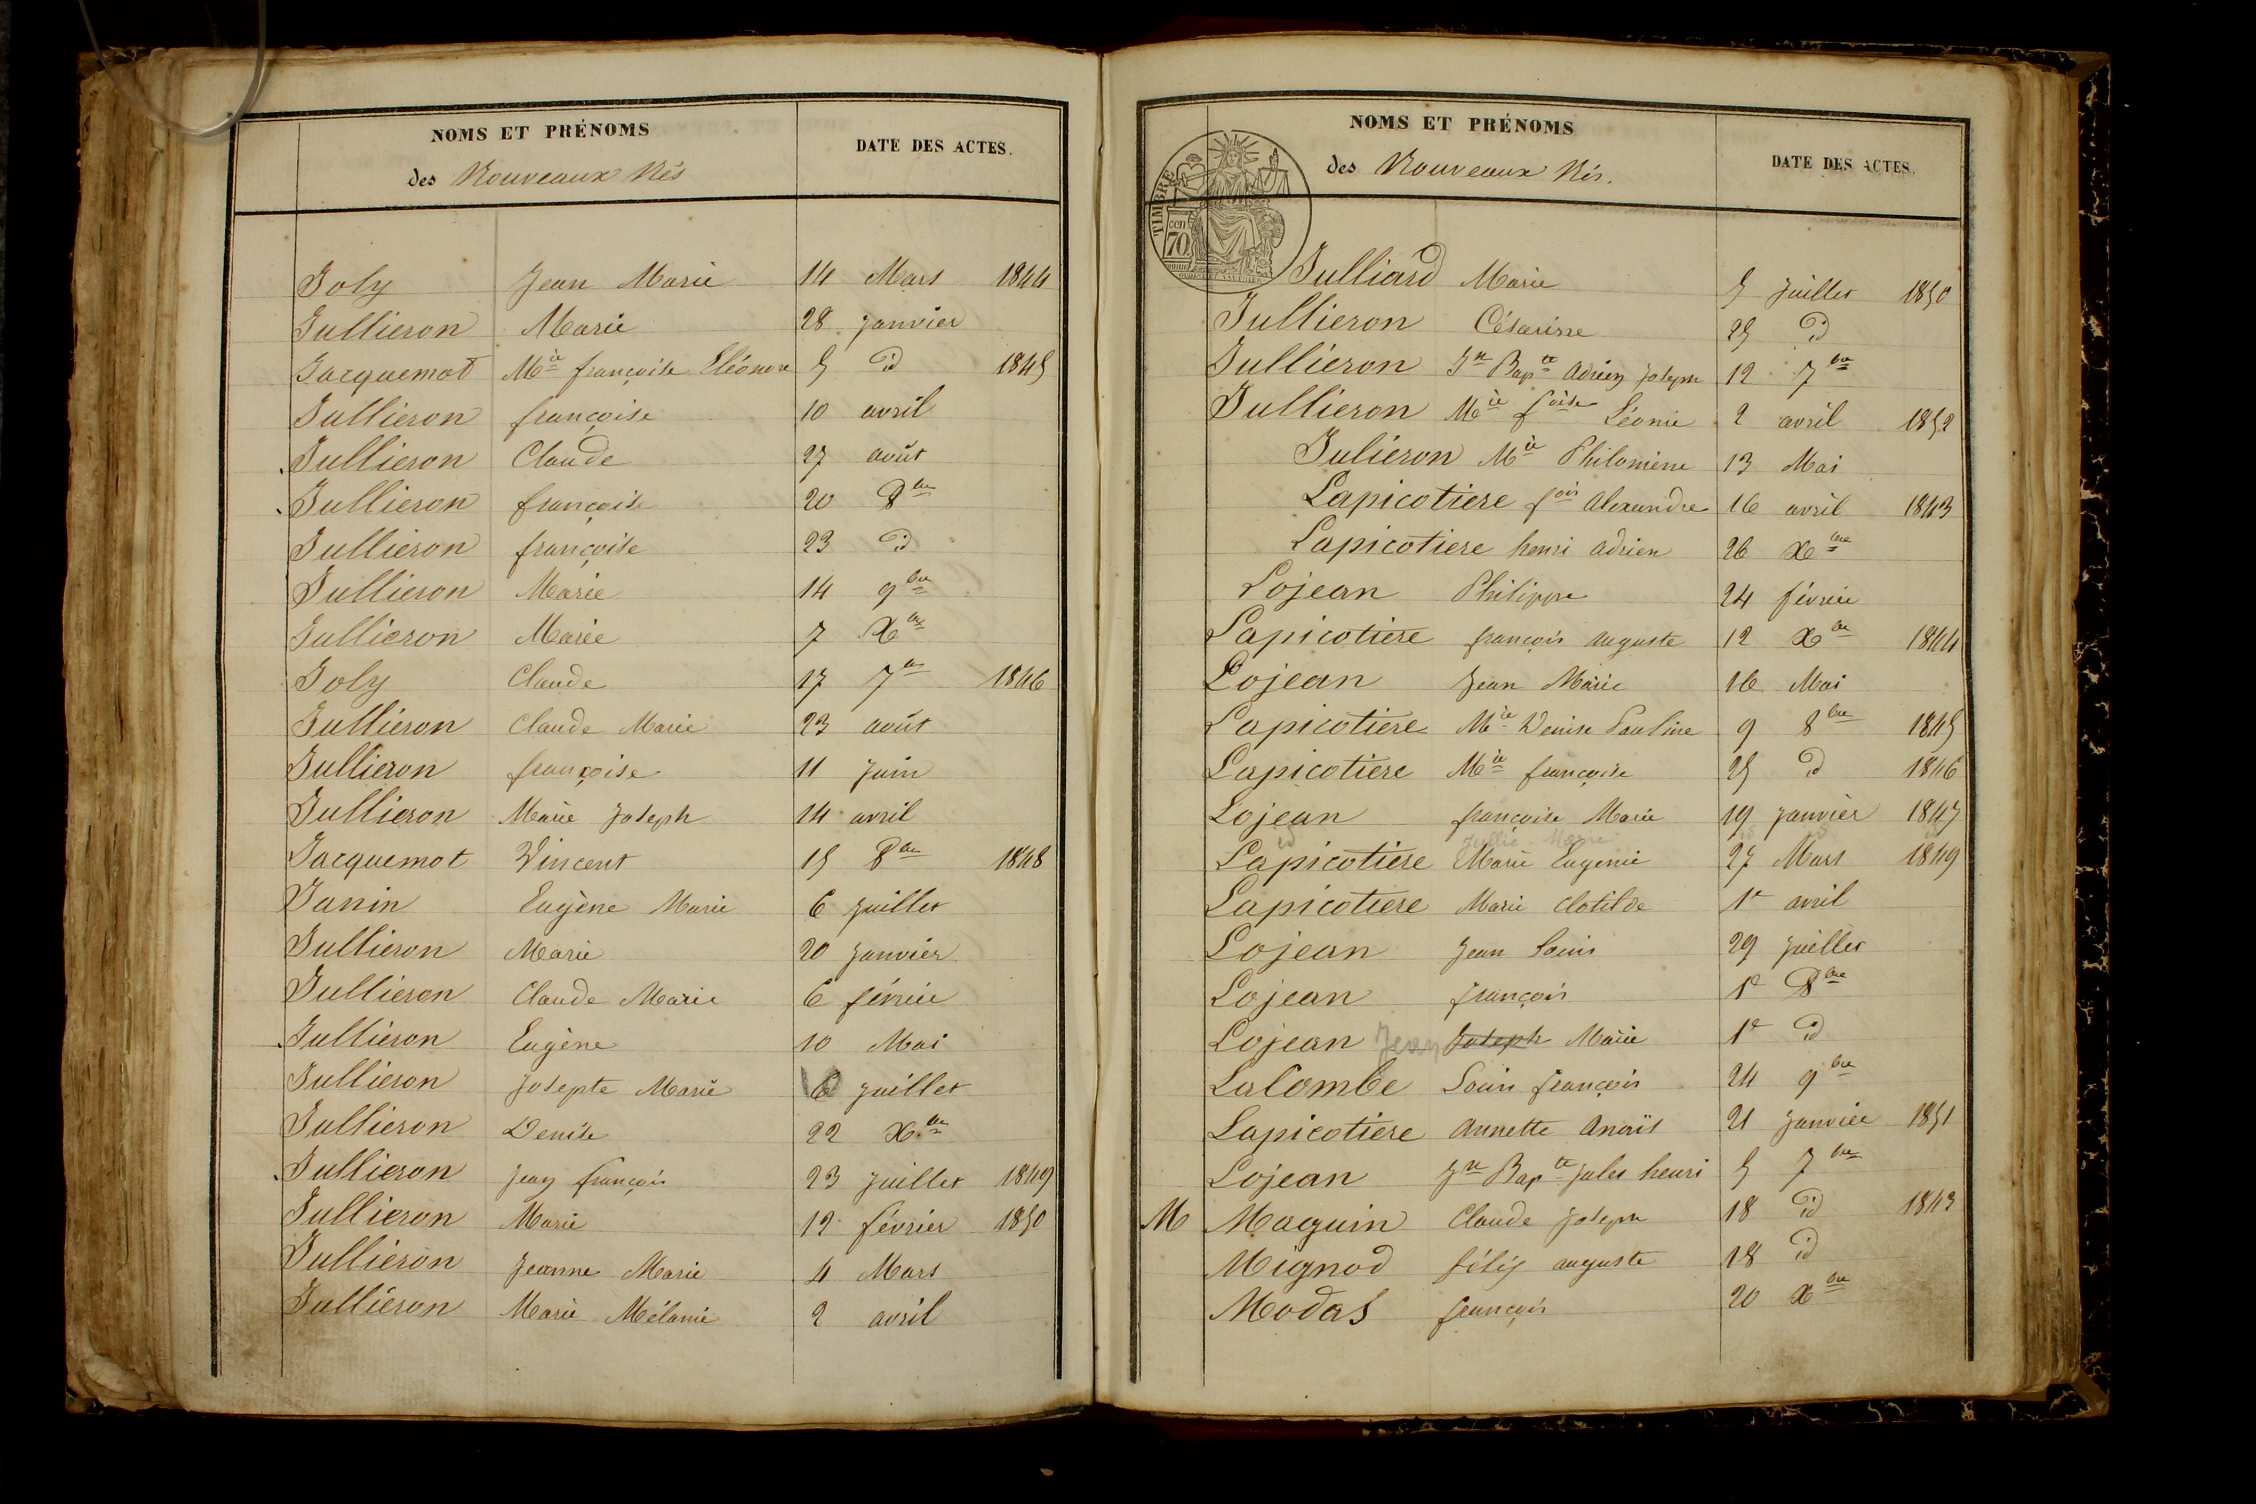 NOMS ET PRÉNOMS
des Nouveaux Nés
DATE DES ACTES.
Joly Jean Marie 14 Mars 1844
Jullieron Marie 28 Janvier
Jacquemot Mie françoise Eléonore 5 id 1845
Jullieron françoise 10 avril
Jullieron Claude 27 août
Jullieron françoise 20 8bre
Jullieron françoise 23 id
Jullieron Marie 14 9bre
Jullieron Marie 7 Xbre
Joly Claude 17 7bre 1846
Jullieron Claude Marie 23 août
Jullieron françoise 11 Juin
Jullieron Marie Joseph 14 avril
Jacquemot Vincent 15 8bre 1848
Janin Eugène Marie 6 Juillet
Jullieron Marie 20 Janvier
Jullieron Claude Marie 6 février
Jullieron Eugène 10 Mai
Jullieron Josepte Marie 6 Juillet
Jullieron Denise 22 Xbre
Jullieron Jean françois 23 Juillet 1849
Jullieron Marie 12 février 1850
Jullieron Jeanne Marie 4 Mars
Jullieron Marie Mélanie 2 avril
NOMS ET PRÉNOMS
des Nouveaux Nés.
DATE DES ACTES.
TIMBRE
70 cen
Julliard Marie 5 Juillet 1850
Jullieron Césarine 25 id
Jullieron Jn Bapte Adrien Joseph 12 7bre
Jullieron Mie foise Léonie 2 avril 1852
Juliéron Mie Philomène 13 Mai
Lapicotiere fois Alexandre 16 avril 1843
Lapicotiere henri adrien 26 Xbre
Lojean Philippe 24 février
Lapicotiere françois auguste 12 Xbre 1844
Lojean Jean Marie 16 Mai
Lapicotiere Mie Denise Pauline 9 8bre 1845
Lapicotiere Mie françoise 25 id 1846
Lojean françoise Marie 19 Janvier 1847
id Jullie Marie
Lapicotiere Marie Eugenie 27 Mars 1849
Lapicotiere Marie Clotilde 1er avril
Lojean Jean Louis 29 Juillet
Lojean françois 1er 8bre
Lojean Jean Joseph Marie 1er id
LaCombe Louis françois 24 9bre
Lapicotiere Annette Anaïs 21 Janvier 1851
Lojean Jn Bapte Jules henri 5 7bre
M Maquin Claude Joseph 18 id 1843
Mignod félix auguste 18 id
Modas françois 20 Xbre